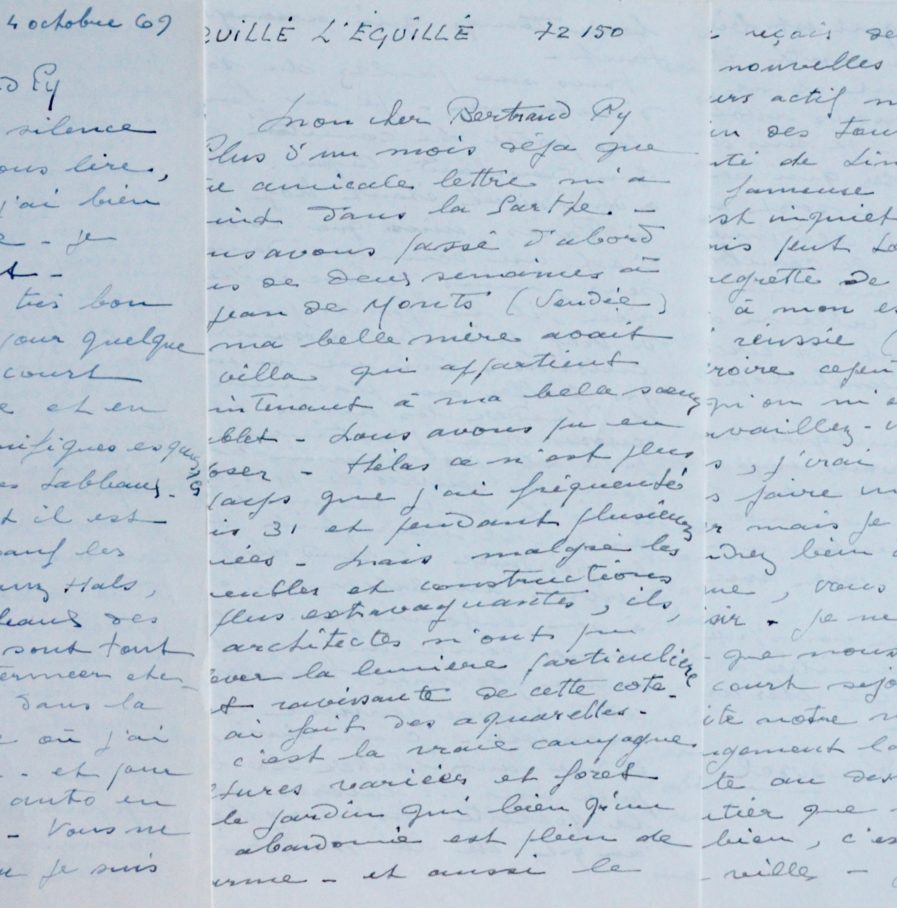 4 octobre 69
Py
silence
ous lire,
j'ai bien
e - je
t -
très bon
pour quelque
court
e et en
nifiques esquisses
es tableaux -
t il est
sauf les
Hals,
leaux des
sont tout
ermeer etc
dans la
e où j'ai
- et pour
auto en
- Vous ne
je suis
QUILLÉ L'ÉGUILLÉ 72150
Mon cher Bertrand Py
Plus d'un mois déjà que
e amicale lettre m'a
int dans la Sarthe. -
us avons passé d'abord
us de deux semaines à
Jean de Monts (Vendée)
ma belle mère avait
villa qui appartient
intenant à ma belle soeur
blet - Nous avons pu en
oser - Hélas ce n'est plus
temps que j'ai fréquenté
is 31 et pendant plusieurs
nées - Mais malgré les
eubles et constructions
plus extravaguantes, ils,
architectes n'ont pu
ever la lumière particulière
et ravissante de cette cote.
ai fait des aquarelles -
c'est la vraie campagne
tures variées et forêt
le jardin qui bien qu'un
abandonné est plein de
arme - et aussi le
reçois de
nouvelles
urs actif
des
té de Lim
fameuse
st inquiet
is peut
regrette de
à mon
réussie (
roire cepen
qu'on m'
availlez -
s, j'irai
s faire
r mais je
drez bien
ne, vous
sir. Je ne
- que nous
court séjo
ite notre
gement
te au des
tier que
bien, c'es
ville -